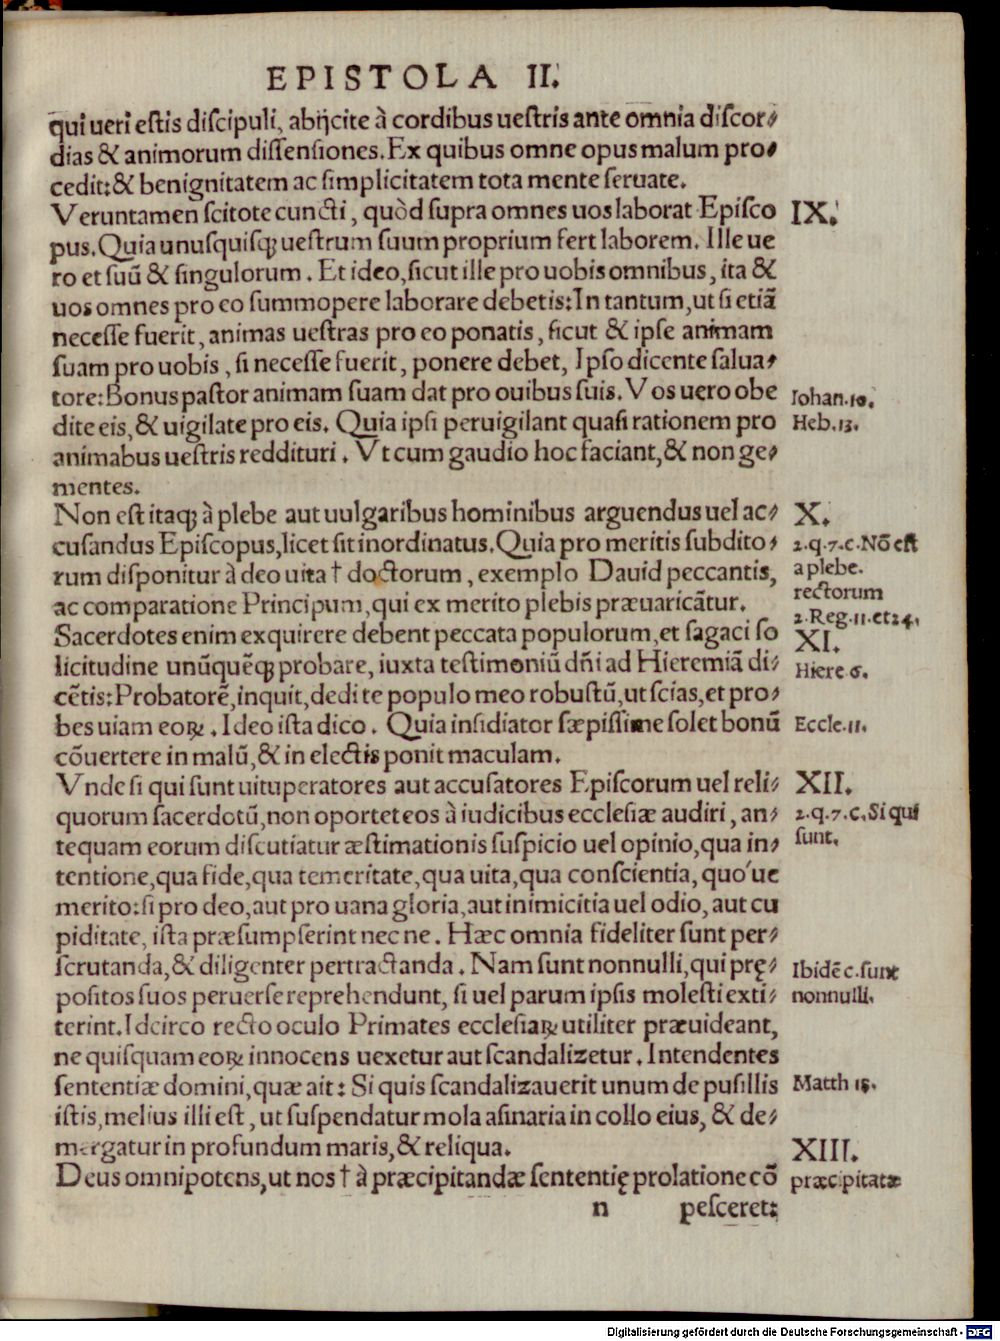 EPISTOLA II.
qui ueri estis discipuli, abijcite à cordibus uestris ante omnia discor-
dias & animorum dissensiones. Ex quibus omne opus malum pro-
cedit: & benignitatem ac simplicitatem tota mente seruate.
Veruntamen scitote cuncti, quòd supra omnes uos laborat Episco
IX.
pus. Quia unusquisqꝫ uestrum suum proprium fert laborem. Ille ue
ro et suũ & singulorum. Et ideo, sicut ille pro uobis omnibus, ita &
uos omnes pro eo summopere laborare debetis: In tantum, ut si etiã
necesse fuerit, animas uestras pro eo ponatis, sicut & ipse animam
suam pro uobis, si necesse fuerit, ponere debet, Ipso dicente salua-
tore: Bonus pastor animam suam dat pro ouibus suis. Vos uero obe
Iohan. 10.
dite eis, & uigilate pro eis. Quia ipsi peruigilant quasi rationem pro
Heb. 13.
animabus uestris reddituri. Vt cum gaudio hoc faciant, & non ge-
mentes.
Non est itaqꝫ à plebe aut uulgaribus hominibus arguendus uel ac-
X.
cusandus Episcopus, licet sit inordinatus. Quia pro meritis subdito-
2. q. 7. c. Nõ est
rum disponitur à deo uita † doctorum, exemplo Dauid peccantis,
a plebe.
rectorum
ac comparatione Principum, qui ex merito plebis præuaricãtur.
2. Reg. 11. et 24.
Sacerdotes enim exquirere debent peccata populorum, et sagaci so
XI.
licitudine unũquẽqꝫ probare, iuxta testimoniũ dñi ad Hieremiã di-
Hiere 6.
cẽtis: Probatorẽ, inquit, dedi te populo meo robustũ, ut scias, et pro-
bes uiam eoꝝ. Ideo ista dico. Quia insidiator sæpissime solet bonũ
Eccle. 11.
cõuertere in malũ, & in electis ponit maculam.
Vnde si qui sunt uituperatores aut accusatores Episcorum uel reli-
XII.
quorum sacerdotũ, non oportet eos à iudicibus ecclesiæ audiri, an-
2. q. 7. c. Si qui
tequam eorum discutiatur æstimationis suspicio uel opinio, qua in-
sunt.
tentione, qua fide, qua temeritate, qua uita, qua conscientia, quóue
merito: si pro deo, aut pro uana gloria, aut inimicitia uel odio, aut cu
piditate, ista præsumpserint nec ne. Hæc omnia fideliter sunt per-
scrutanda, & diligenter pertractanda. Nam sunt nonnulli, qui prę-
Ibidẽ c. sunt
positos suos peruerse reprehendunt, si uel parum ipsis molesti exti-
nonnulli.
terint. Idcirco recto oculo Primates ecclesiaꝝ utiliter præuideant,
ne quisquam eoꝝ innocens uexetur aut scandalizetur. Intendentes
sententiæ domini, quæ ait: Si quis scandalizauerit unum de pusillis
Matth 18.
istis, melius illi est, ut suspendatur mola asinaria in collo eius, & de-
mergatur in profundum maris, & reliqua.
XIII.
Deus omnipotens, ut nos † à præcipitandæ sententię prolatione cõ
præcipitatæ
n pesceret:
Digitalisierung gefördert durch die Deutsche Forschungsgemeinschaft - DFG